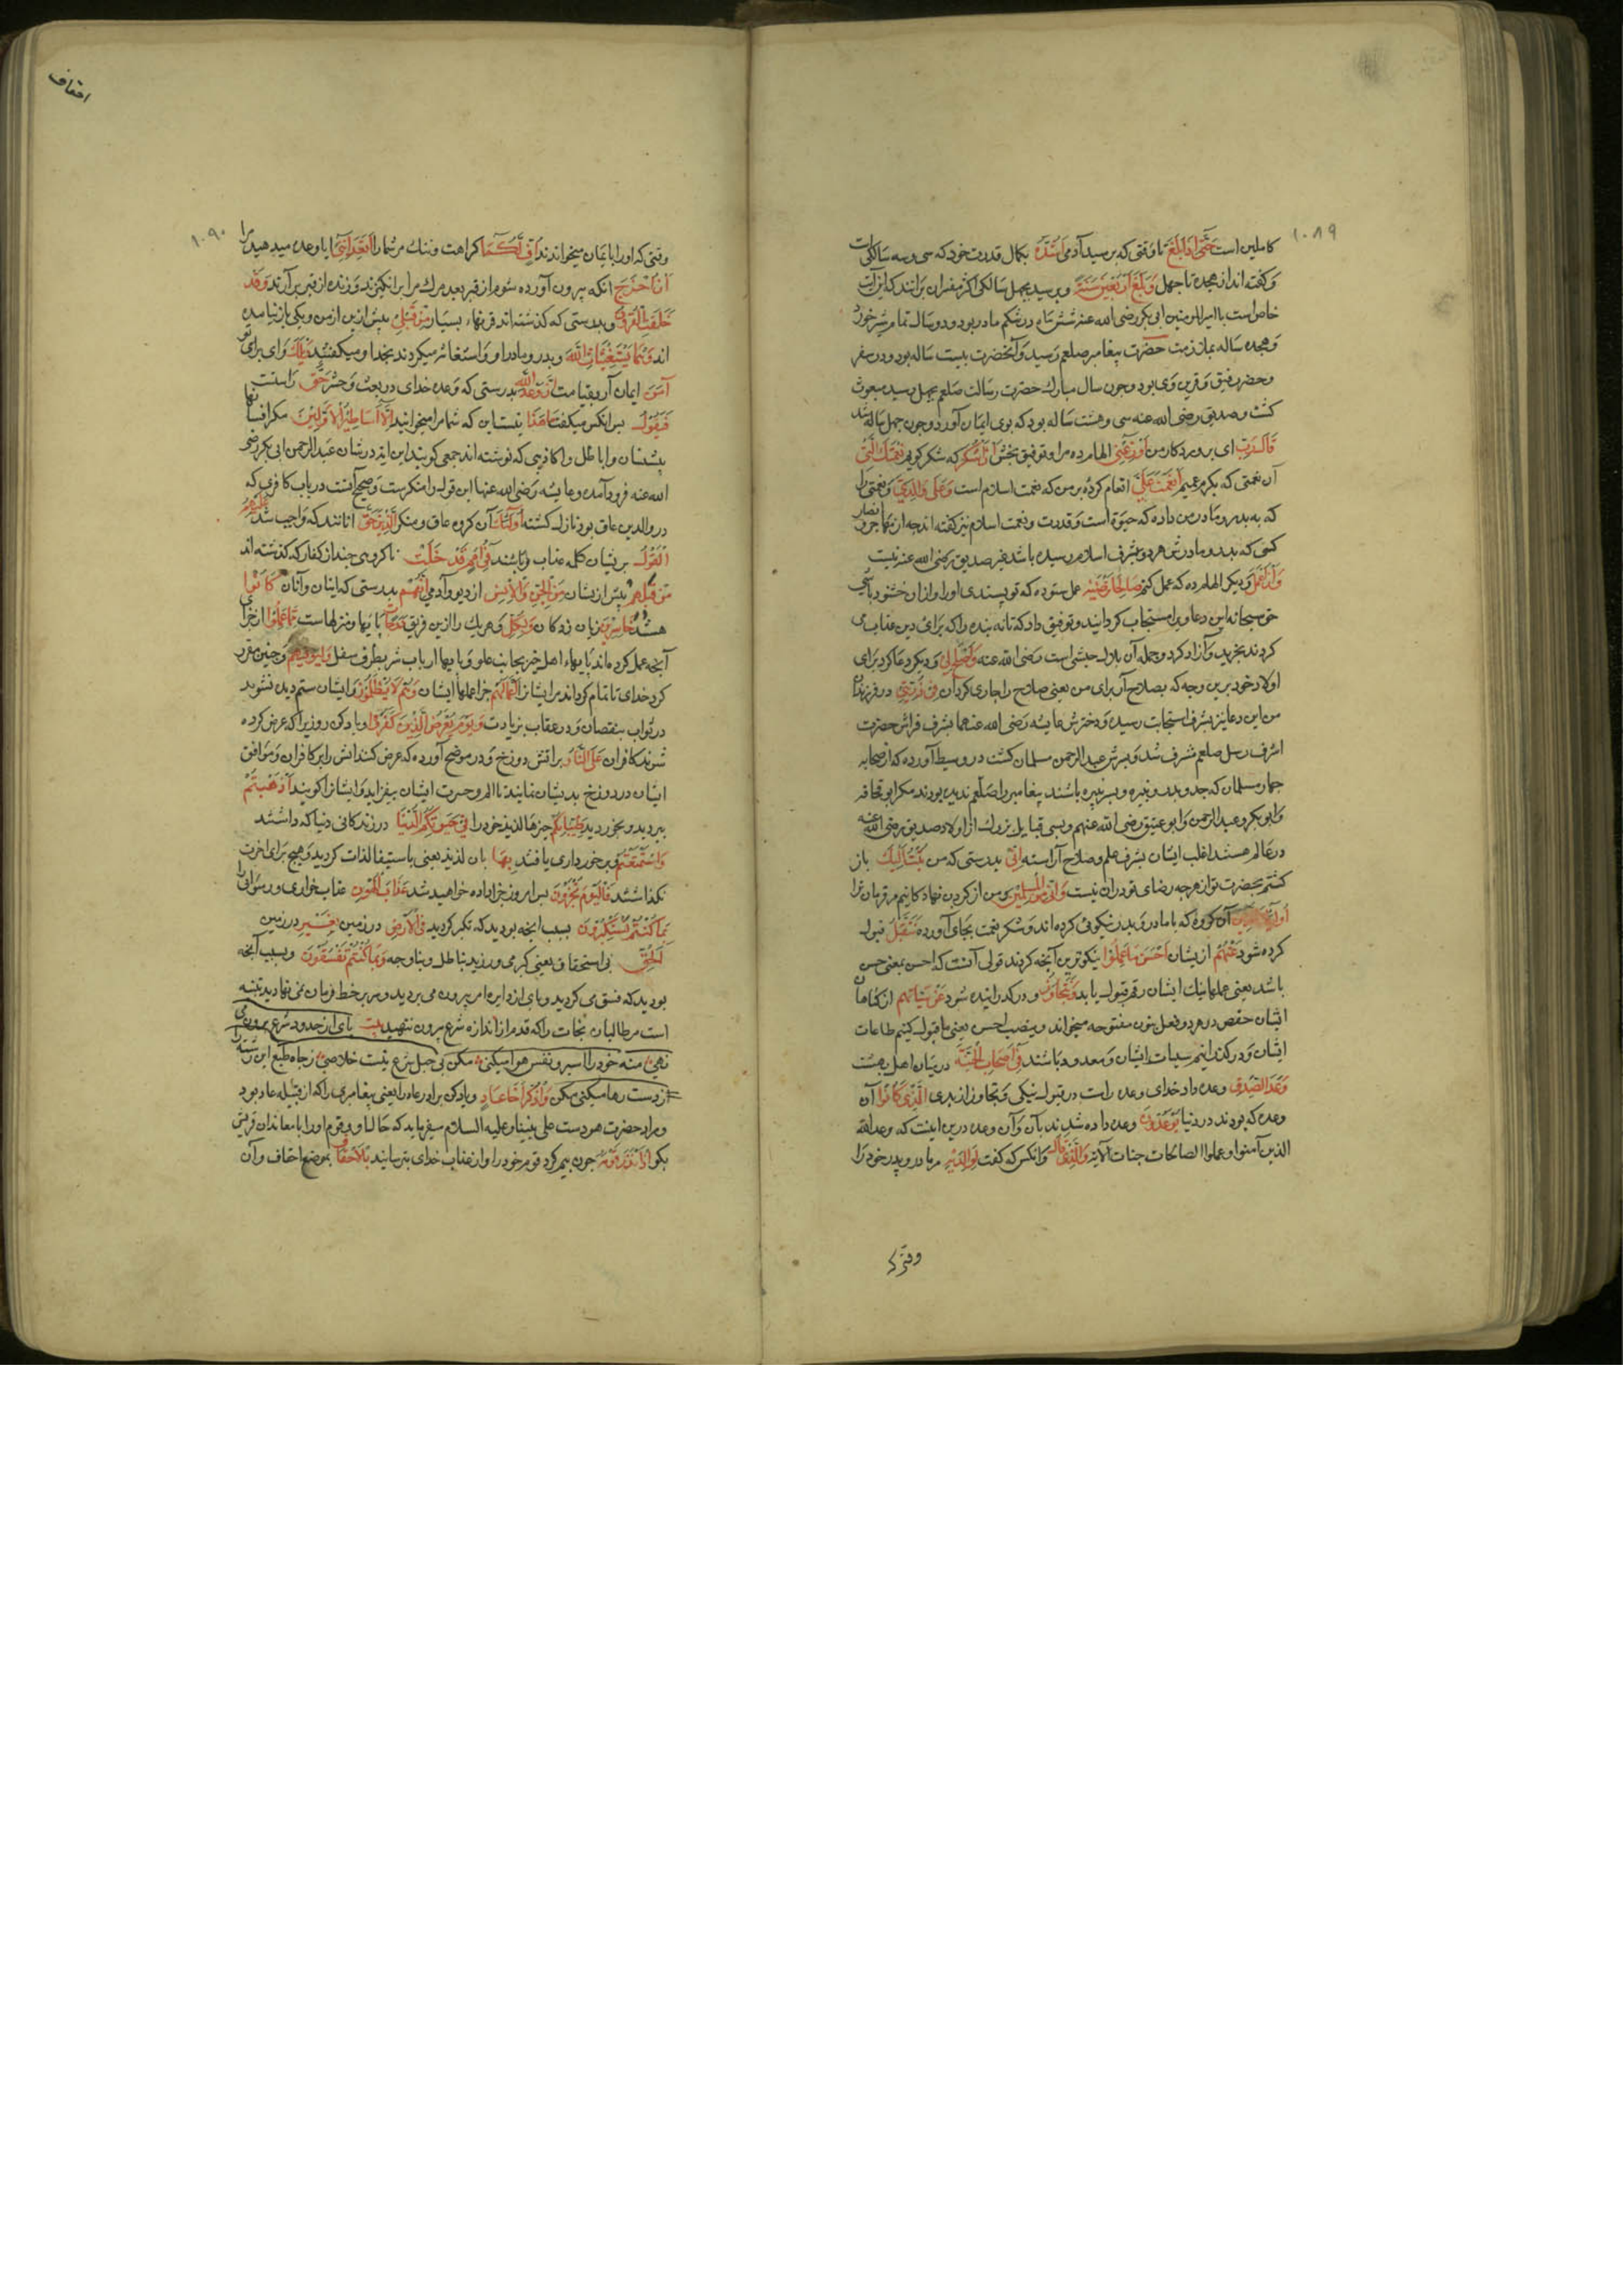 ۱۰۸۹
کاملین است حَتّٰی اِذَا بَلَغَ تا وقتی که برسید آدمی اَشُدَّهُ بکمال قدرت خود که سی و سه سالگی است
وکفته اند از هجده تا جهل وَبَلَغَ اَرْبَعِینَ سَنَةً وبرسید بجهل سالکی اکثر مفسران برانند که این آیت
خاص است با امیرالمومنین ابی بکر رضی الله عنه شش ماه در شکم مادر بود ودو سال تمام شیر خورد
وهجده ساله بملازمت حضرت پیغامبر صلعم رسید وآنحضرت بیست ساله بود ودر سفر
وحضر رفیق وقرین وی بود وجون سال مبارك حضرت رسالت صلعم بجهل رسید مبعوث
کشت وصدیق رضی الله عنه سی وهشت ساله بود که بوی ایمان آورد وجون جهل ساله شد
قَالَ رَبِّ ای پروردکار من اَوْزِعْنِی الهام ده مرا وتوفیق بخش اَنْ اَشْکُرَ که شکر کویم نِعْمَتَكَ الَّتِی
آن نعمتی که بکرم عمیم اَنْعَمْتَ عَلَیَّ انعام کردهٔ بر من که نعمت اسلام است وَعَلٰی وَالِدَیَّ ونعمتی را
که به پدر ومادر من داده که حیوة است وقدرت ونعمت اسلام نیز کفته اند جه از مهاجر وانصار
کسی که پدر ومادرش هر دو بشرف اسلام رسیده باشد غیر صدیق رضی الله عنه نیست
وَاَنْ اَعْمَلَ ودیکر الهام ده که عمل کنم صَالِحًا تَرْضٰیهُ عمل ستوده که تو پسندی اورا واز ان خشنود باشی
حق سبحانه این دعا ویرا مستجاب کردانید وتوفیق داد که تا نه بنده را که برای دین عذاب می
کردند بخرید وآزاد کرد وجمله آن بلال حبشی است رضی الله عنه وَاَصْلِحْ لِی ودیکر دعا کرد برای
اولاد خود برین وجه که بصلاح آر برای من یعنی صلاح را جاری کردان فِی ذُرِّیَّتِی در فرزندان
من این دعا نیز بشرف استجابت رسید ودخترش عایشه رضی الله عنهما بشرف فراش حضرت
اشرف رسل صلعم مشرف شد وپسرش عبد الرحمن مسلمان کشت در وسیط آورده که از صحابه
جهار مسلمان که جد وپدر ونبیره وپسر نبیره باشند پیغامبر را صلعم ندیده بودند مکر ابو قحافه
وابوبکر وعبد الرحمن وابو عتیق رضی الله عنهم وبسی قبایل بزرك از اولاد صدیق رضی الله عنه
در عالم هستند اغلب ایشان بشرف علم وصلاح آراسته اِنِّی بدرستی که من تُبْتُ اِلَیْكَ باز
کشتم بحضرت تو از هرجه رضای تو در ان نیست وَاِنِّی مِنَ الْمُسْلِمِینَ ومن از کردن نهاد کانیم مر فرمان ترا
اُولٰئِكَ الَّذِینَ آن کروه که با مادر وپدر نیکوئی کرده اند وشکر نعمت بجای آورده نَتَقَبَّلُ قبول
کرده شود عَنْهُمْ از یشان اَحْسَنَ مَا عَمِلُوا نیکوترین آنجه کردند قولی آنست که احسن بمعنی حسن
باشد یعنی عملهای نیك ایشان رقم قبول یابد وَنَتَجَاوَزُ ودر کذرانیده شود عَنْ سَیِّئَاتِهِمْ از کناهان
ایشان حفص در هر دو فعل بنون مفتوحه میخواند وبنصب احسن یعنی ما قبول کنیم طاعات
ایشان ودر کذرانیم سیات ایشان ومعدود باشند فِی اَصْحَابِ الْجَنَّةِ در میان اهل بهشت
وَعْدَ الصِّدْقِ وعده داد خدای وعده راست در قبول نیکی وتجاوز از بدی الَّذِی کَانُوا آن
وعده که بودند در دنیا یُوعَدُونَ وعده داده شدند بآن وآن وعده درین اینست که وعد الله
الذین آمنوا وعملوا الصالحات جنات الآیة وَالَّذِی قَالَ وآنکس که کفت لِوَالِدَیْهِ مر مادر وپدر خود را
وقتی که
احقاف
۱۰۹۰
وقتی که اورا بایمان میخواندند اُفٍّ لَکُمَا کراهت وننك مر شمارا اَتَعِدَانِنِی ایا وعده میدهید مرا
اَنْ اُخْرَجَ انکه بیرون آورده شوم از قبر بعد مرك مرا برانکیزند وزنده از قبر برآرند وَقَدْ
خَلَتِ الْقُرُونُ وبدرستی که کذشته اند قرنهاء بسیار مِنْ قَبْلِی پیش ازین از من ویکی باز نیامده
اند وَهُمَا یَسْتَغِیثَانِ اللّٰهَ وپدر ومادر او واستغاثه میکردند بخدا ومیکفتند وَیْلَكَ وای برای تو
آمِنْ ایمان آر بقیامت اِنَّ وَعْدَ اللّٰهِ بدرستی که وعده خدای در بعث وحشر حَقٌّ راستست
فَیَقُولُ پس انکس میکفت مَا هٰذَا نیست این که شما مرا میخوانید اِلَّا اَسَاطِیرُ الْاَوَّلِینَ مکر افسانها
پیشینان وابا طل واکاذیبی که نوشته اند جمعی کویند این ایه در شان عبد الرحمن ابی بکر رضی
الله عنه فرود آمده وعایشه رضی الله عنها این قول را منکرست وصحیح آنست در باب کافری که
در والدین عاق بود نازل کشته اُولٰئِكَ آن کروه عاق ومنکر الَّذِینَ حَقَّ انانند که واجب شد عَلَیْهِمُ
الْقَوْلُ بریشان کلمه عذاب وباشند فِی اُمَمٍ قَدْ خَلَتْ با کروهی جند از کفار که کذشته اند
مِنْ قَبْلِهِمْ پیش ازیشان مِنَ الْجِنِّ وَالْاِنْسِ از دیو وآدمی اِنَّهُمْ بدرستی که اینان وآنان کَانُوا
هستند خَاسِرِینَ زیان زدکان وَلِکُلٍّ وهریك را ازین فریق دَرَجَاتٌ پایها ومنزلهاست مِمَّا عَمِلُوا از جزای
آنجه عمل کرده اند پایهاء اهل خیر بجانب علو وپایها ارباب شر بطرف سفل وَلِیُوَفِّیَهُمْ وجنین مقرر
کرد خدای تا تمام کرداند مرایشانرا اَعْمَالَهُمْ جزا عملهاء ایشان وَهُمْ لَا یُظْلَمُونَ وایشان ستم دیده نشوند
در ثواب بنقصان ودر عقاب بزیادت وَیَوْمَ یُعْرَضُ الَّذِینَ کَفَرُوا ویاد کن روزیرا که عرض کرده
شوند کافران عَلَی النَّارِ براتش دوزخ ودر موضح آورده که عرض کنند آتش را بر کافران وموافق
ایشان در دوزخ بدیشان نمایند تا الم وحسرت ایشان بیفزاید وایشانرا کویند اَذْهَبْتُمْ
ببردید وبخوردید طَیِّبَاتِکُمْ جیزهاء لذیذ خود را فِی حَیٰوتِکُمُ الدُّنْیَا در زندکانی دنیا که داشتند
وَاسْتَمْتَعْتُمْ وبرخورداری یافتند بِهَا بان لذیذ یعنی باستیفا لذات کردید وهیج برای اخرت
نکذاشتند فَالْیَوْمَ تُجْزَوْنَ پس امروز جزا داده خواهید شد عَذَابَ الْهُونِ عذاب خواری ورسوائی را
بِمَا کُنْتُمْ تَسْتَکْبِرُونَ بسبب انجه بودید که تکبر کردید فِی الْاَرْضِ در زمین بِغَیْرِ در زمین
الْحَقِّ بی استحقاق یعنی کبر می ورزید بباطل وبناوجه وَبِمَا کُنْتُمْ تَفْسُقُونَ وبسبب آنجه
بودید که فسق می کردید وپای از دایره امر بیرون می بردید وسر بر خط فرمان نمی نهادید تنبیه
است مر طالبان نجات را که قدم از اندازه شرع بیرون ننهید بیت پای از حدود شرع برون می
نهی منه خود را اسیر ونفس هوا میکنی مکن بی حبل شرع نیست خلاصی ز جاه طبع این رشته را
ز دست رها میکنی مکن وَاذْکُرْ اَخَا عَادٍ ویاد کن برادر عاد را یعنی پیغامبری را که از قبیله عاد بود
ومراد حضرت هودست علی نبینا وعلیه السلام میفرماید که حالا او وقوم اورا با معاندان قریش
بکو اِذْ اَنْذَرَ قَوْمَهُ جون بیم کرد قوم خود را واز عذاب خدای بترسانید بِالْاَحْقَافِ بموضع احقاف وآن